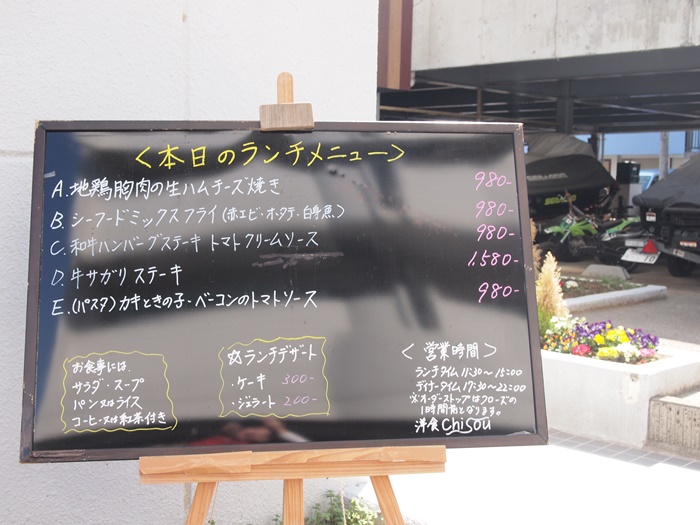 <本日のランチメニュー>
A. 地鶏胸肉の生ハムチーズ焼き 980-
B. シーフードミックスフライ(赤エビ・ホタテ・白身魚) 980-
C. 和牛ハンバーグステーキ トマトクリームソース 980-
D. 牛サガリステーキ 1,580-
E. (パスタ)カキときの子・ベーコンのトマトソース 980-
お食事には、
サラダ・スープ
パン又はライス
コーヒー又は紅茶付き
ランチデザート
・ケーキ 300-
・ジェラート 200-
<営業時間>
ランチタイム 11:30～15:00
ディナータイム 17:30～22:00
※オーダーストップはクローズの
1時間前となります。
洋食 Chisou
SEADOO